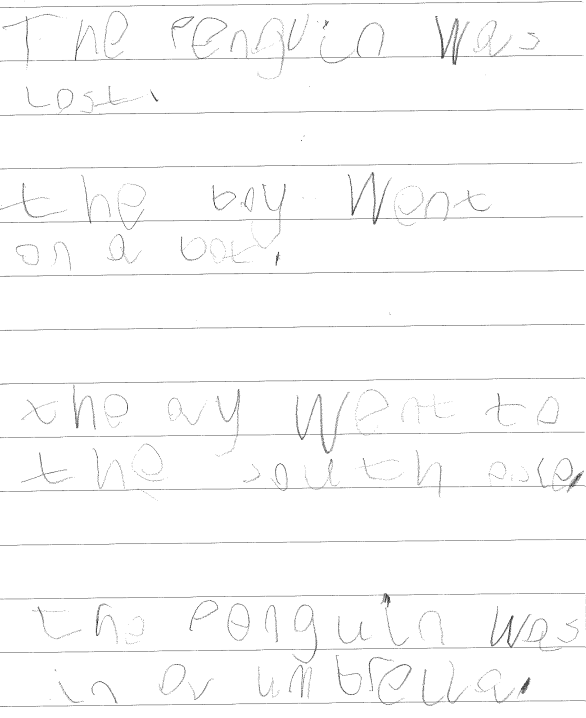 The Penguin was
Lost.
the boy went
on a bot.
the oy went to
the south
the Penguin was
in or umbrella.